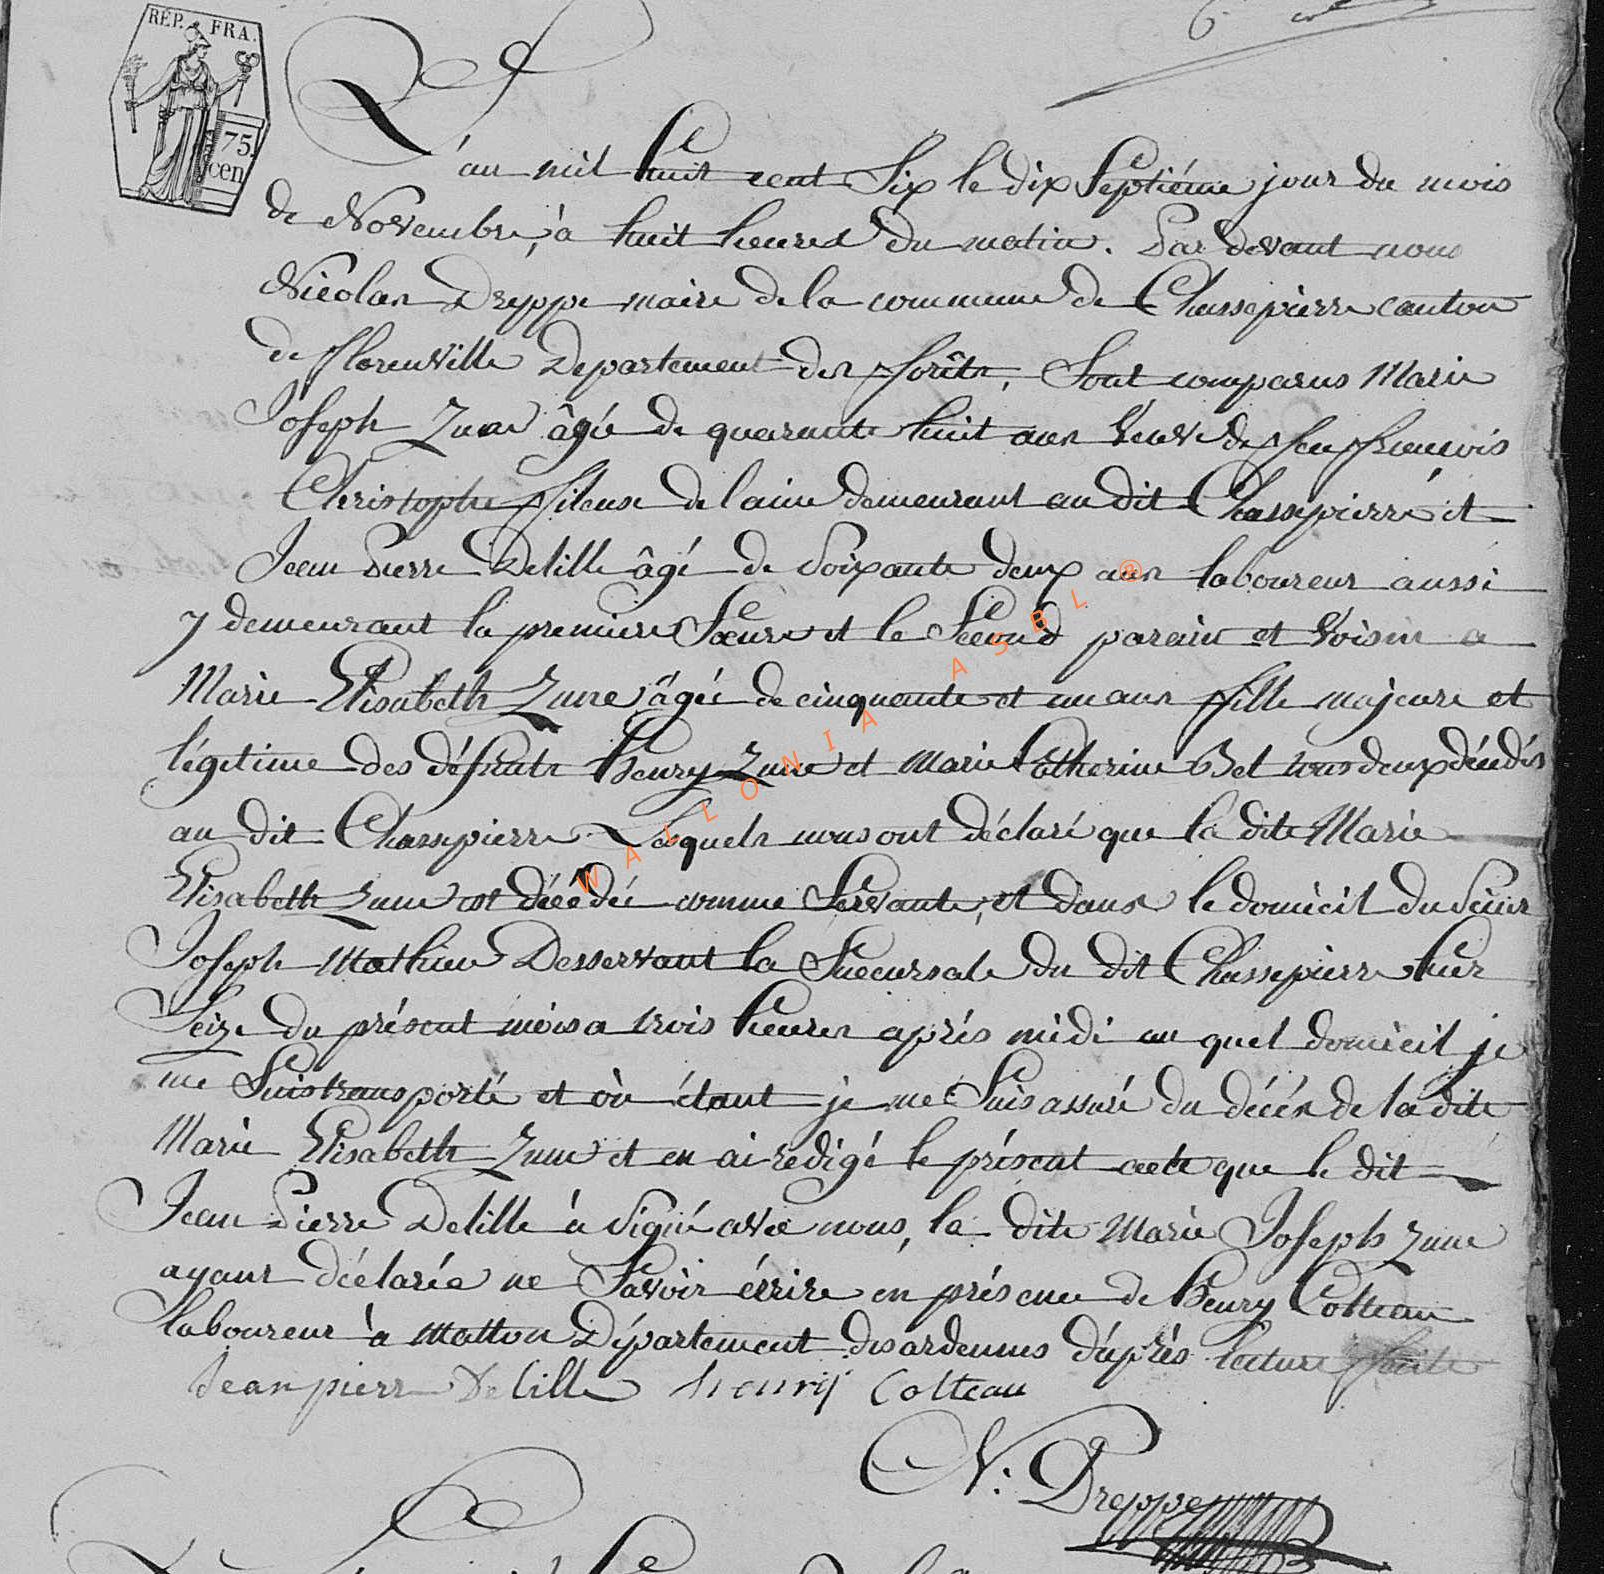 RÉP. FRA.
75.
cen
L'an mil huit cent Six le dix Septiéme jour du mois
de Novembre, à huit heures du matin. Par devant nous
Nicolas Dreppe maire de la commune de Chassepierre canton
de florenville Departement des forêts, Sont comparus Marie
Joseph Zune âgé de quarante huit ans Veuve de feu francois
Christophe fileuse de laine demeurant au dit Chassepierre et
Jean Pierre Delille âgé de Soixante deux ans laboureur aussi
y demeurant la premiere Sœure et le Second parain et Voisin a
Marie Elisabeth Zune âgée de cinquante et un ans fille majeure et
légetime des défunts Henry Zune et Marie Catherine Bet tous deux décédés
au dit Chassepierre. Lesquels nous ont déclaré que la dite Marie
Elisabeth Zune est décédée comme Servante, et dans le domicil du Sieur
Joseph Mathieu Desservant la Succursale du dit Chassepierre hier
Seize du présent mois a trois heures aprés midi au quel domicil je
me Suis transporté et où étant je me Suis assuré du décés de la dite
Marie Elisabeth Zune et en ai redigé le présent acte que le dit
Jean Pierre Delille à Signé avec nous, la dite Marie Joseph Zune
ayant déclarée ne Savoir écrire en présence de Henry Cotteau
laboureur à Matton Département des ardennes d'après lecture faite
Jean pierre Delille henry Cotteau
N: Dreppe
WALLONIA ASBL ®